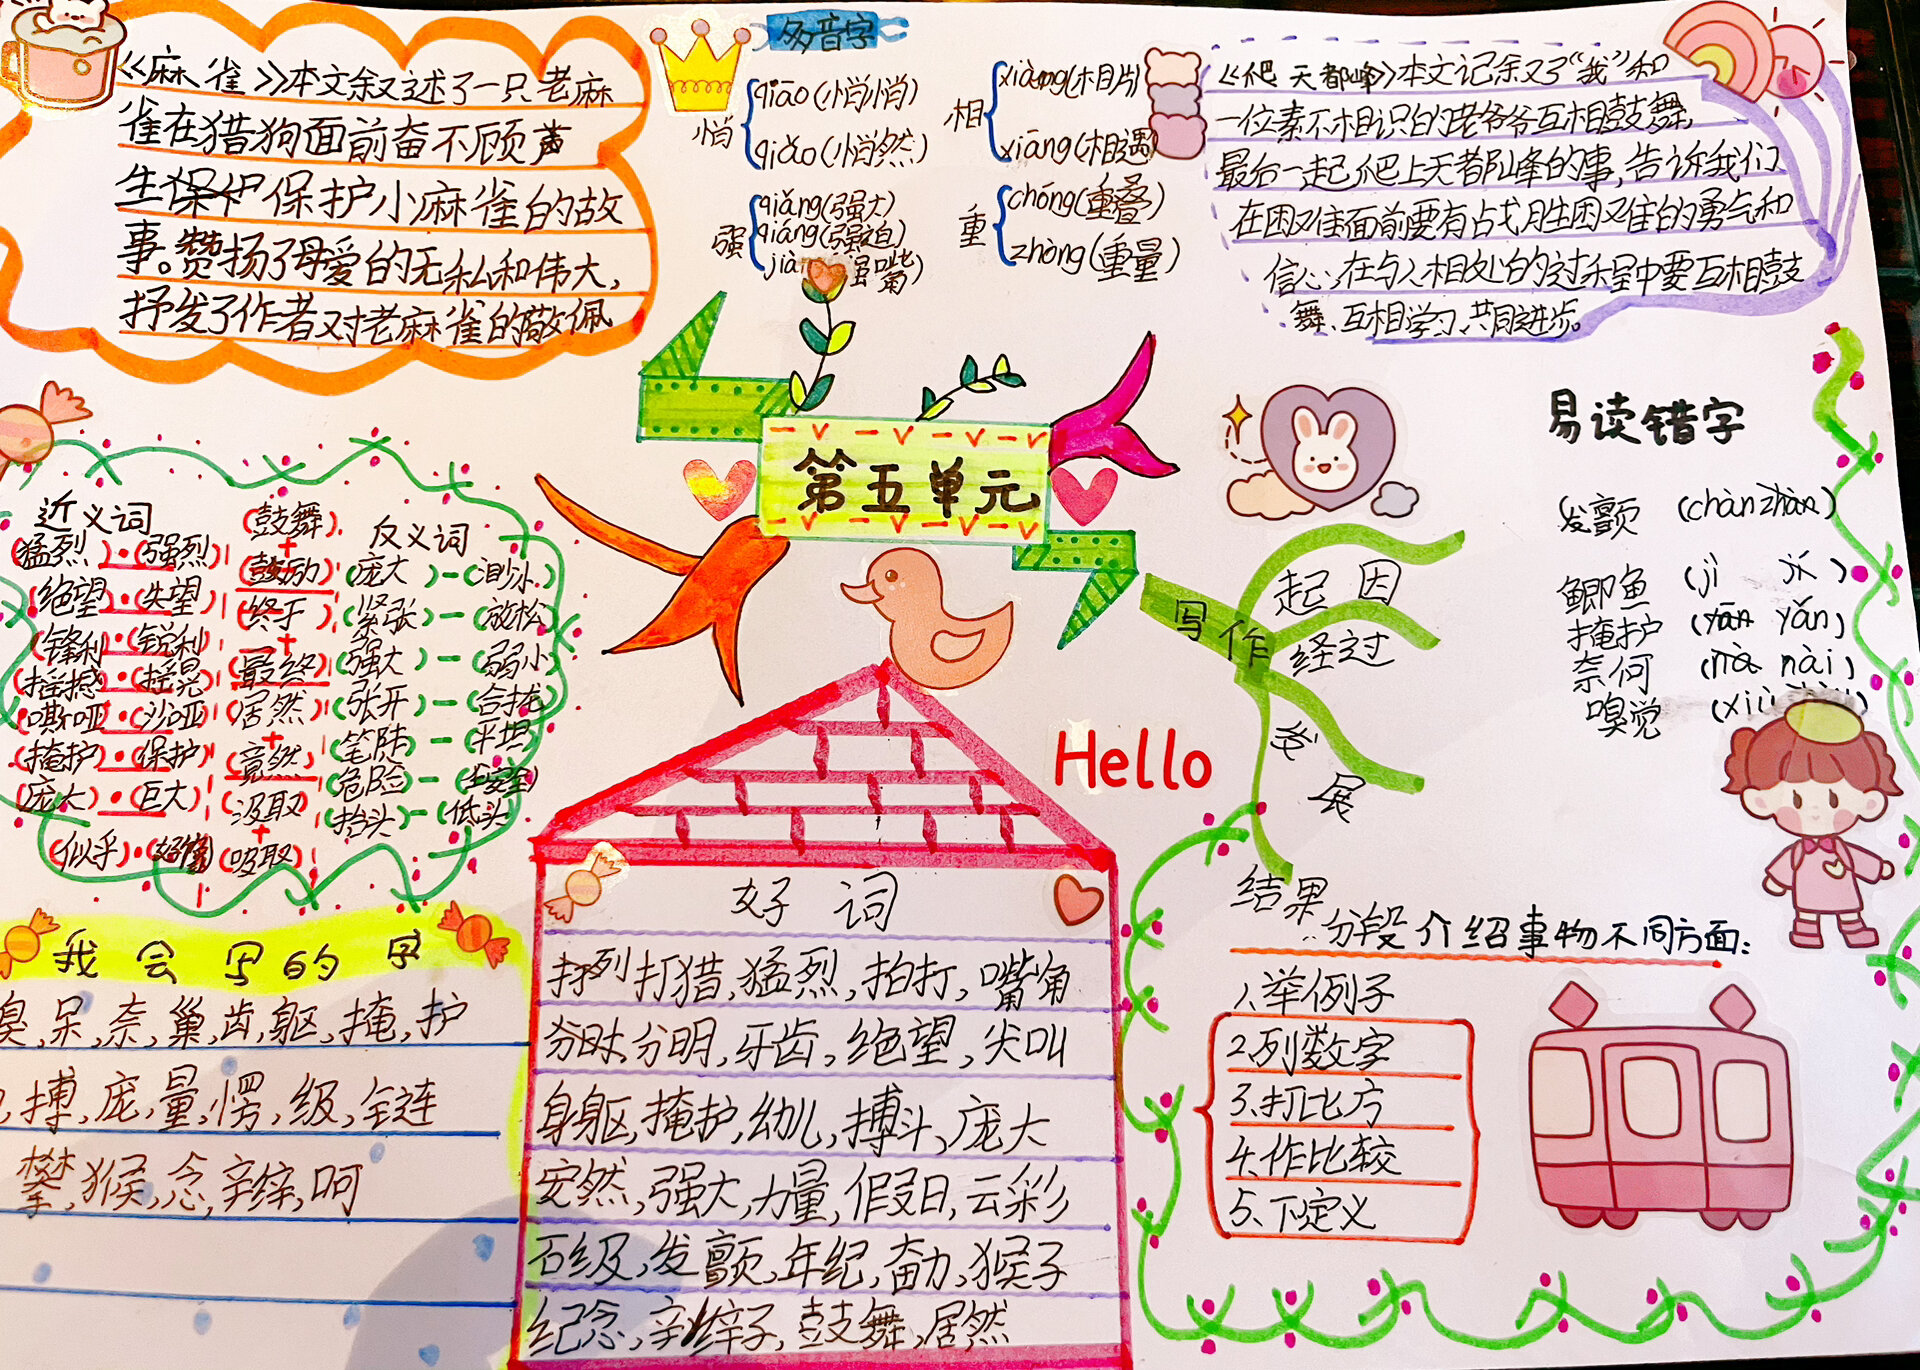 《麻雀》本文叙述了一只老麻
雀在猎狗面前奋不顾声
生保护保护小麻雀的故
事。赞扬了母爱的无私和伟大,
抒发了作者对老麻雀的敬佩
多音字
悄
qiāo(悄悄)
qiǎo(悄然)
相
xiàng(相片)
xiāng(相遇)
强
qiáng(强大)
qiǎng(强迫)
重
chóng(重叠)
zhòng(重量)
《爬天都峰》本文记叙了“我”和
一位素不相识的老爷爷互相鼓舞,
最后一起爬上天都峰的事,告诉我们
在困难面前要有战胜困难的勇气和
信心,在与人相处的过程中要互相鼓
舞、互相学习、共同进步。
第五单元
近义词
(猛烈)·(强烈)
(绝望)·(失望)
(锋利)·(锐利)
(摇撼)·(摇晃)
(嘶哑)·(沙哑)
(掩护)·(保护)
(庞大)·(巨大)
(似乎)·(好像)
(鼓舞)
+
(鼓励)
(终于)
+
(最终)
(居然)
+
(竟然)
(汲取)
+
(吸取)
反义词
(庞大)-(渺小)
(紧张)-(放松)
(强大)-(弱小)
(张开)-(合拢)
(笔陡)-(平坦)
(危险)-(安全)
(抬头)-(低头)
易读错字
发颤 (chàn zhàn)
鲫鱼 (jì jí)
掩护 (yān yǎn)
奈何 (nà nài)
嗅觉
写作
起因
经过
发展
结果
Hello
我会写的字
嗅,呆,奈,巢,齿,躯,掩,护
搏,庞,量,愣,级,链
攀,猴,念,辫,呵
好词
打猎,猛烈,拍打,嘴角
分明,牙齿,绝望,尖叫
身躯,掩护,幼儿,搏斗,庞大
安然,强大,力量,假日,云彩
石级,发颤,年纪,奋力,猴子
纪念,辫子,鼓舞,居然
分段介绍事物不同方面:
1.举例子
2.列数字
3.打比方
4.作比较
5.下定义